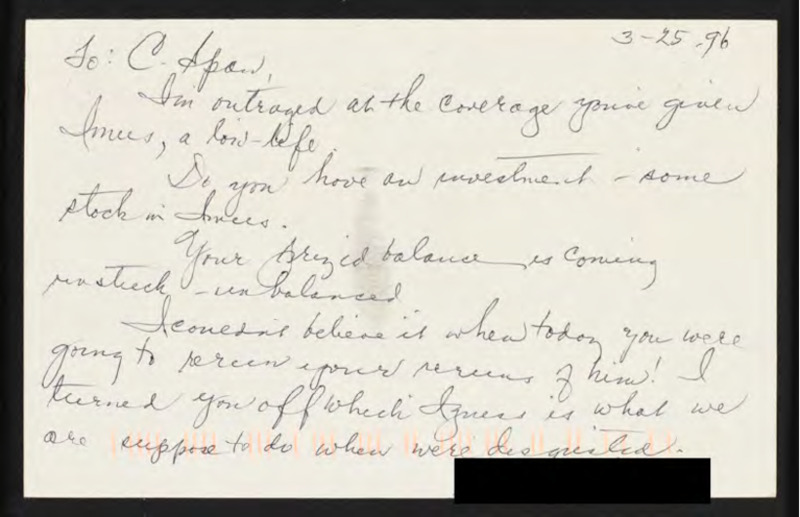 3-25-96
To: C. Span,
I'm outraged at the coverage you've given
Imus, a low-life.
Do you have an investment - some
stock in Imus.
Your prized balance is coming
unstuck - unbalanced
I couldn't believe it when today you were
going to rerun your reruns of him! I
turned you off which I guess is what we
are suppose to do when we're disgusted.